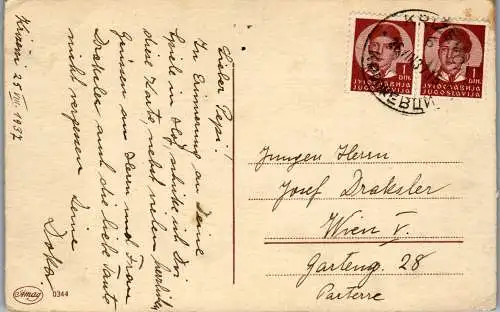 Križevci 25 VIII. 1937
Lieber Pepi!
In Erinnerung an Deine
Spiele in Hof, schicke ich Dir
diese Karte nebst vielen herzlichen
Grüssen an Herrn und Frau
Draksler auch die liebe Tante
nicht vergessen Deine
Doka
Amag 0344
КРИЖЕВЦИ
1 DIN.
ЈУГОСЛАВИЈА
JUGOSLAVIJA
1 DIN.
ЈУГОСЛАВИЈА
JUGOSLAVIJA
Jungen Herrn
Josef Draksler
Wien V.
Garteng. 28
Parterre